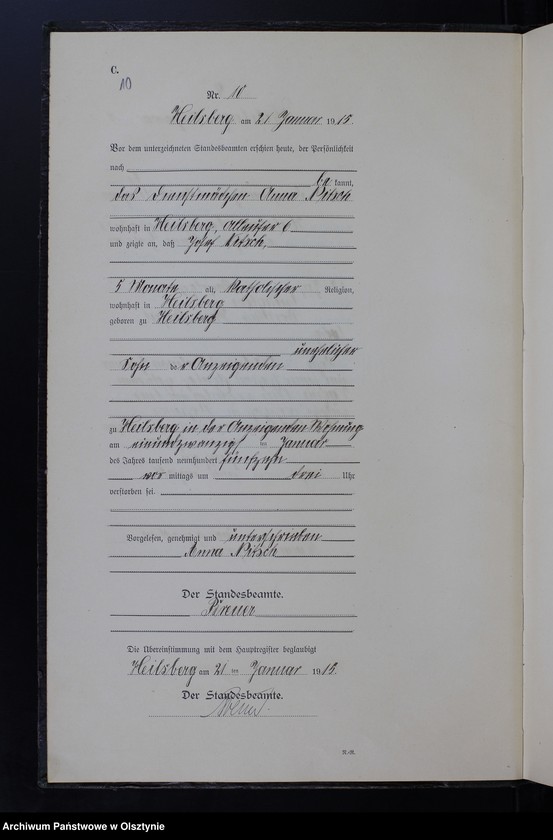 C.
10
Nr. 10
Heilsberg am 21 Januar 1915.
Vor dem unterzeichneten Standesbeamten erschien heute, der Persönlichkeit
nach
be kannt,
das Dienstmädchen Anna Nitsch
wohnhaft in Heilsberg, 6
und zeigte an, daß Josef Nitsch,
5 Monate alt, katholischer Religion,
wohnhaft in Heilsberg
geboren zu Heilsberg
unehelicher
Sohn der Anzeigenden
zu Heilsberg in der Anzeigenden Wohnung
am einundzwanzigsten Januar
des Jahres tausend neunhundert fünfzehn
vor mittags um drei Uhr
verstorben sei.
Vorgelesen, genehmigt und unterschrieben
Anna Nitsch
Der Standesbeamte.
Die Übereinstimmung mit dem Hauptregister beglaubigt
Heilsberg am 21 ten Januar 1915.
Der Standesbeamte.
Archiwum Państwowe w Olsztynie